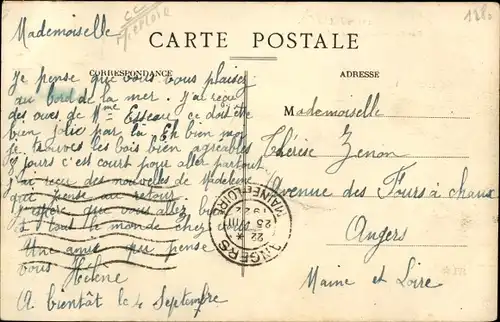 Mademoiselle
CARTE POSTALE
CORRESPONDANCE
ADRESSE
Je pense que vous vous plaisez
au bord de la mer. J'ai reçu
des de Mme Esseau ce doit être
bien jolie par là Eh bien moi
je trouves les bois bien agréables
8 jours c'est court pour aller partout
j'ai reçu des nouvelles de Madeleine
qui pense au retour
J'espère que vous allez
à tout le monde chez vous
Une amie qui pense
vous Hélène
A bientôt le 4 Septembre
Mademoiselle
Thérèse Zenon
Avenue des Fours à chaux
Angers
Maine et Loire
ANGERS
MAINE ET LOIRE